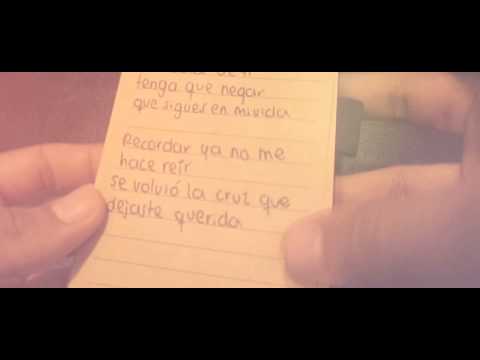 tenga que negar
que sigues en mi vida
Recordar ya no me
hace reír
se volvió la cruz que
dejaste querida